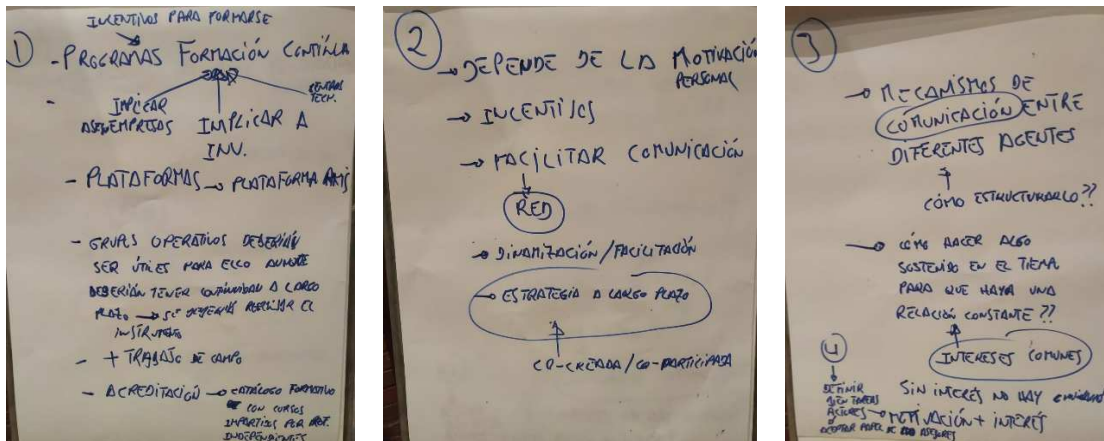 INCENTIVOS PARA FORMARSE
1
- PROGRAMAS FORMACIÓN CONTÍNUA
CENTROS
TECN.
- IMPLICAR
EMPRESAS
IMPLICAR A
INV.
- PLATAFORMAS → PLATAFORMA AKIS
- GRUPOS OPERATIVOS DEBERÍAN
SER ÚTILES PARA ELLO AUNQUE
DEBERÍAN TENER CONTINUIDAD A LARGO
PLAZO → SE DEBERÍA REVISAR EL
INSTRUMENTO
- + TRABAJO DE CAMPO
- ACREDITACIÓN → CATÁLOGO FORMATIVO
CON CURSOS
IMPARTIDOS POR
INDEPENDIENTES
2
→ DEPENDE DE LA MOTIVACIÓN
PERSONAL
→ INCENTIVOS
→ FACILITAR COMUNICACIÓN
RED
→ DINAMIZACIÓN/FACILITACIÓN
→ ESTRATEGIA A LARGO PLAZO
CO-CREADA/CO-PARTICIPADA
3
→ MECANISMOS DE
COMUNICACIÓN ENTRE
DIFERENTES AGENTES
CÓMO ESTRUCTURARLO??
→ CÓMO HACER ALGO
SOSTENIDO EN EL TIEMPO
PARA QUE HAYA UNA
RELACIÓN CONSTANTE??
INTERESES COMUNES
SIN INTERÉS NO HAY
→ MOTIVACIÓN + INTERÉS
4
DEFINIR
BIEN TAREAS
ACTORES
ACEPTAR PAPEL DE